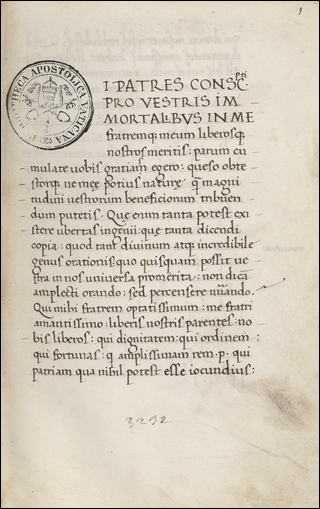 1
BIBLIOTHECA APOSTOLICA VATICANA
I PATRES CONSC
pti
PRO VESTRIS IM
MORTALIBVS IN ME
fratremq; meum liberosq;
nostros meritis: parum cu
mulate uobis gratiam egero: queso obte
storq; ne meę potius naturę q̃ magni
tudini uestrorum beneficiorum tribuen
dum putetis. Que enim tanta potest exi
stere ubertas ingenii: quę tanta dicendi
copia: quod tam diuinum atq; incredibile
genus orationis: quo quisquam possit ue
stra in nos uniuersa promerita: non dicã
amplecti orando: sed percensere nũerando.
Qui mihi fratrem optatissimum: me fratri
amantissimo: liberis nostris parentes: no
bis liberos: qui dignitatem: qui ordinem:
qui fortunas: q amplissimam rem. p. qui
patriam qua nihil potest esse iocundius:
3232